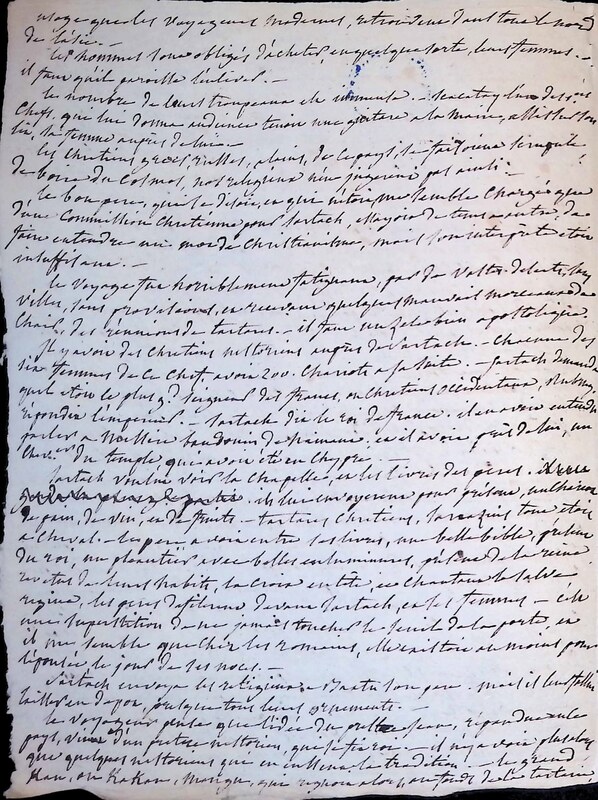 usage que les voyageurs modernes, retrouvent dans tout le nord
de l'asie. —
les hommes sont obligés d'acheter, en quelque sorte, leurs femmes. —
il faut qu'il paroisse l'enlever. —
le nombre de leurs troupeaux est immense. — l'un des
Chefs, qui lui donna audience tenoit une guitare a la main, assis sur son
lit, sa femme auprès de lui. —
les Chrétiens grecs, russes, alains, de ce pays, se font un scrupule
de boire du Cosmos, nos religieux n'en jugèrent pas ainsi. —
le bon pere, quoi qu'il, en que n'étoit, me semble Chargé que
d'une Commission Chrétienne pour Sartach, essayoit de tems a autre, de
faire entendre un mot de Christianisme, mais son interprète etoit
insuffisant. —
le voyage fut horriblement fatiguant, par de vastes deserts, sans
villes, sans provisions, en recevant quelques mauvais morceaux de
Chair, des reunions de tartares. — il faut un zele bien apostolique.
Il y avoit des Chretiens nestoriens auprès de Sartach. — Chacune des
six femmes de ce Chef, avoit 200 Chariots a sa suite. — Sartach demanda
quel etoit le plus gd seigneur des francs, ou Chretiens Occidentaux, Rubruq.
repondit l'empereur. — Sartach dit le roi de france. il en avoit entendu
parler a Messire baudouin de hainaut, et il avoit près de lui, un
Chev.er du temple, qui avoit été en Chypre. —
Sartach voulut voir la Chapelle, et les livres des peres.
ils lui envoyerent pour présent, un
de pain, de vin, et de fruits — tartares Chretiens, sarrazins tout etoit
a Cheval. — les peres avoient entre ses livres, une belle bible, présent
du roi, un pseautier avec belles enluminures, présent de la reine
revetus de leurs habits, la Croix en tete et Chantant le salve
regina, les peres defilerent devant Sartach, et ses femmes — c'est
une superstition de ne jamais toucher le seuil de la porte, et
il me semble que chez les romains, elle existoit au moins pour
l'épousée le jour de ses noces. —
Sartach envoya les religieux a Baatu son pere. mais il leur fallut
laisser en depot, presque tous leurs ornements. —
le voyageur pense que l'idée du prestre Jean, répandue en ce
pays, vient d'un prestre nestorien, que se fit roi — il n'y avoit plus alors
que quelques nestoriens qui en eussent la tradition. — le grand
Kan, ou KaKan, Mangu, qui regnoit alors, au fonds de la tartarie,